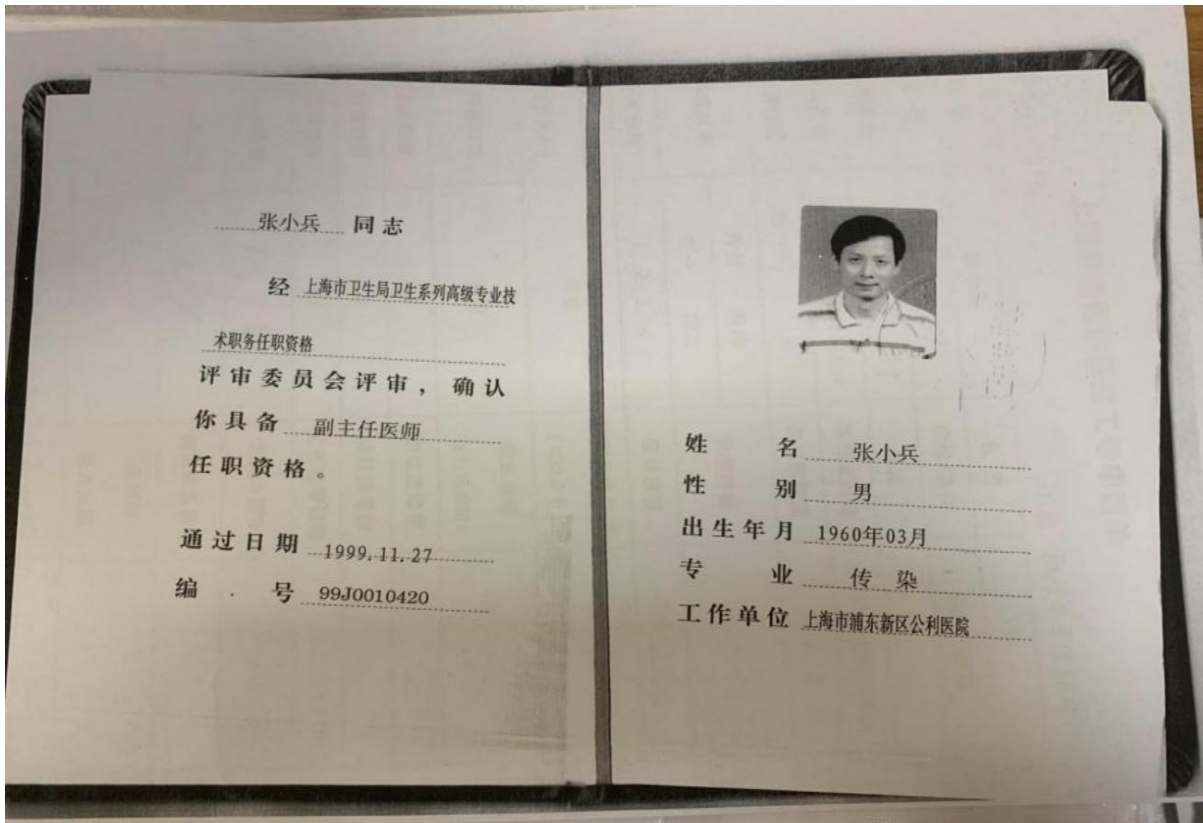 张小兵 同志
经 上海市卫生局卫生系列高级专业技
术职务任职资格
评审委员会评审，确认
你具备 副主任医师
任职资格。
通过日期 1999.11.27
编号 99J0010420
姓名 张小兵
性别 男
出生年月 1960年03月
专业 传染
工作单位 上海市浦东新区公利医院